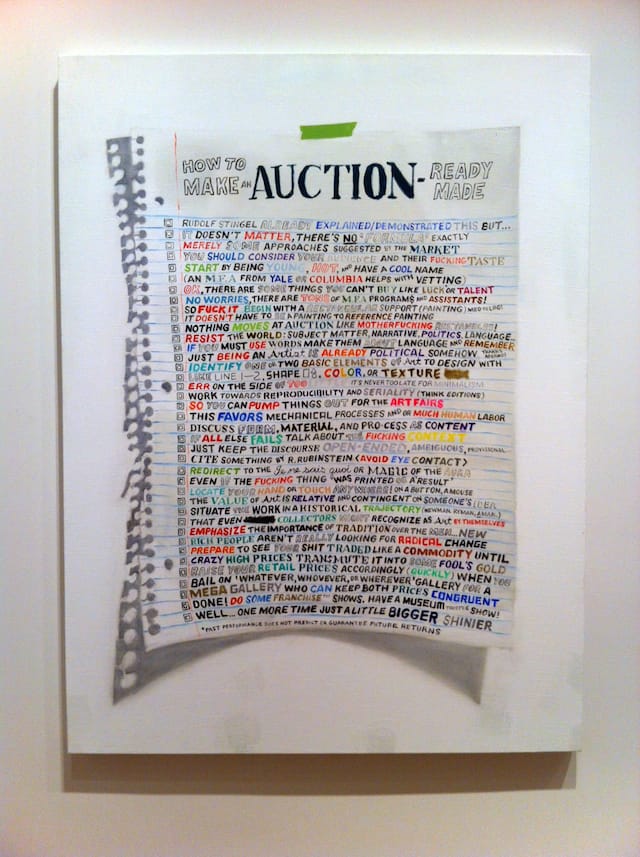 HOW TO
MAKE AN AUCTION-READY
MADE
RUDOLF STINGEL ALREADY EXPLAINED/DEMONSTRATED THIS BUT...
IT DOESN'T MATTER, THERE'S NO "FORMULA" EXACTLY
MERELY SOME APPROACHES SUGGESTED BY THE MARKET
YOU SHOULD CONSIDER YOUR AUDIENCE AND THEIR FUCKING TASTE
START BY BEING YOUNG, HOT, AND HAVE A COOL NAME
(AN M.F.A FROM YALE OR COLUMBIA HELPS WITH VETTING)
OK, THERE ARE SOME THINGS YOU CAN'T BUY LIKE LUCK OR TALENT
NO WORRIES, THERE ARE TONS OF M.F.A PROGRAMS AND ASSISTANTS!
SO FUCK IT BEGIN WITH A RECTANGULAR SUPPORT (PAINTING)
IT DOESN'T HAVE TO BE A PAINTING TO REFERENCE PAINTING
NOTHING MOVES AT AUCTION LIKE MOTHERFUCKING RECTANGLES!
RESIST THE WORLD: SUBJECT MATTER, NARRATIVE, POLITICS, LANGUAGE...
IF YOU MUST USE WORDS MAKE THEM ABOUT LANGUAGE AND REMEMBER
JUST BEING AN Artist IS ALREADY POLITICAL SOMEHOW
IDENTIFY ONE OR TWO BASIC ELEMENTS OF Art TO DESIGN WITH
LIKE LINE 1-2, SHAPE, COLOR, OR TEXTURE
ERR ON THE SIDE OF TOO IT'S NEVER TOO LATE FOR MINIMALISM
WORK TOWARDS REPRODUCIBILITY AND SERIALITY (THINK EDITIONS)
SO YOU CAN PUMP THINGS OUT FOR THE ART FAIRS
THIS FAVORS MECHANICAL PROCESSES AND OR MUCH HUMAN LABOR
DISCUSS FORM, MATERIAL, AND PRO-CESS AS CONTENT
IF ALL ELSE FAILS TALK ABOUT THE FUCKING CONTEXT
JUST KEEP THE DISCOURSE OPEN-ENDED, AMBIGUOUS, PROVISIONAL
CITE SOMETHING BY R. RUBINSTEIN (AVOID EYE CONTACT)
REDIRECT TO THE Je ne sais quoi OR MAGIC OF THE AURA
EVEN IF THE FUCKING THING "WAS PRINTED OR A RESULT"
LOCATE YOUR HAND OR TOUCH ANYWHERE: IN A BUTTON, A MOUSE
THE VALUE OF Art IS RELATIVE AND CONTINGENT ON SOMEONE'S IDEA
SITUATE THE WORK IN A HISTORICAL TRAJECTORY (NEWMAN, RYMAN, AMAN.)
THAT EVEN COLLECTORS MIGHT RECOGNIZE AS Art BY THEMSELVES
EMPHASIZE THE IMPORTANCE OF TRADITION OVER THE MEH...NEW
RICH PEOPLE AREN'T REALLY LOOKING FOR RADICAL CHANGE
PREPARE TO SEE YOUR SHIT TRADED LIKE A COMMODITY UNTIL
CRAZY HIGH PRICES TRANSMUTE IT INTO SOME FOOL'S GOLD
RAISE YOUR RETAIL PRICES ACCORDINGLY (QUICKLY) WHEN YOU
BAIL ON 'WHATEVER, WHOVEVER, OR WHEREVER' GALLERY FOR A
MEGA GALLERY WHO CAN KEEP BOTH PRICES CONGRUENT
DONE! DO SOME FRANCHISE SHOWS. HAVE A MUSEUM SHOW!
WELL... ONE MORE TIME JUST A LITTLE BIGGER SHINIER
*PAST PERFORMANCE DOES NOT PREDICT OR GUARANTEE FUTURE RETURNS